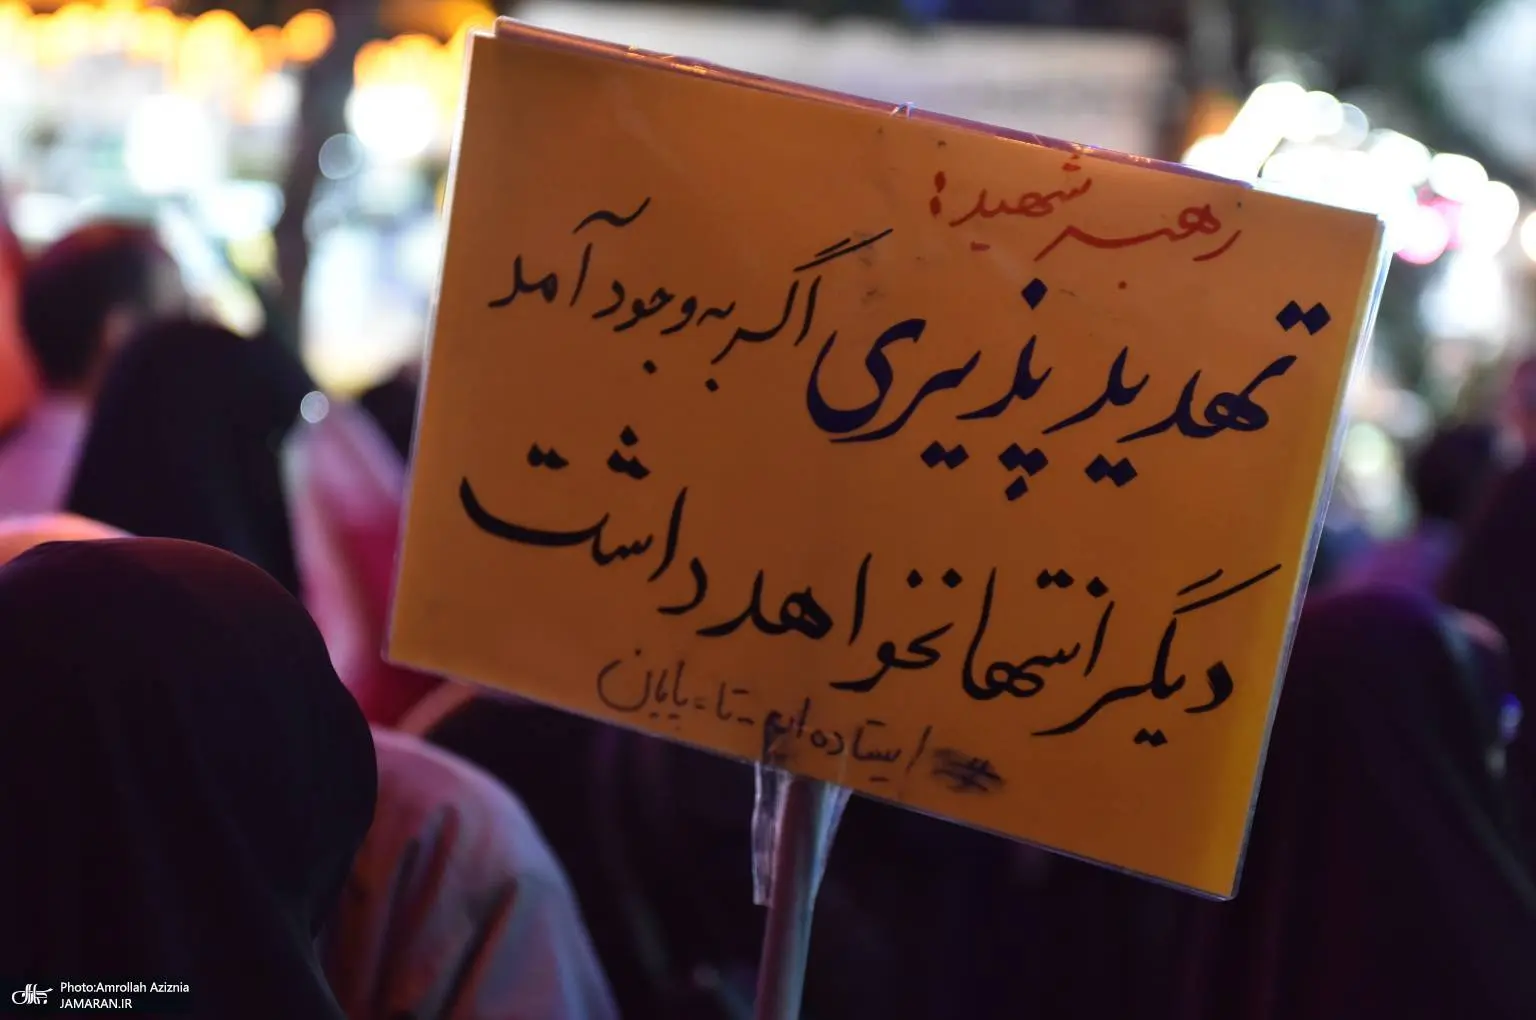 رهبر شهید:
تهدید پذیری اگر به وجود آمد
دیگر انتها نخواهد داشت
#ایستاده‌ایم-تا-پایان
جماران
Photo:Amrollah Aziznia
JAMARAN.IR